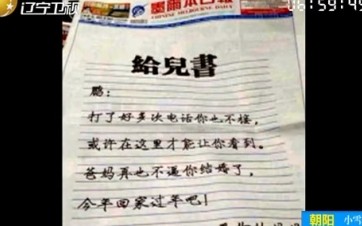 辽宁卫视
06:59:49
墨爾本日報
CHINESE MELBOURNE DAILY
給兒書
鹏:
打了好多次电话你也不接,
或许在这里才能让你看到。
爸妈再也不逼你结婚了,
今年回家过年吧!
朝阳 小雪